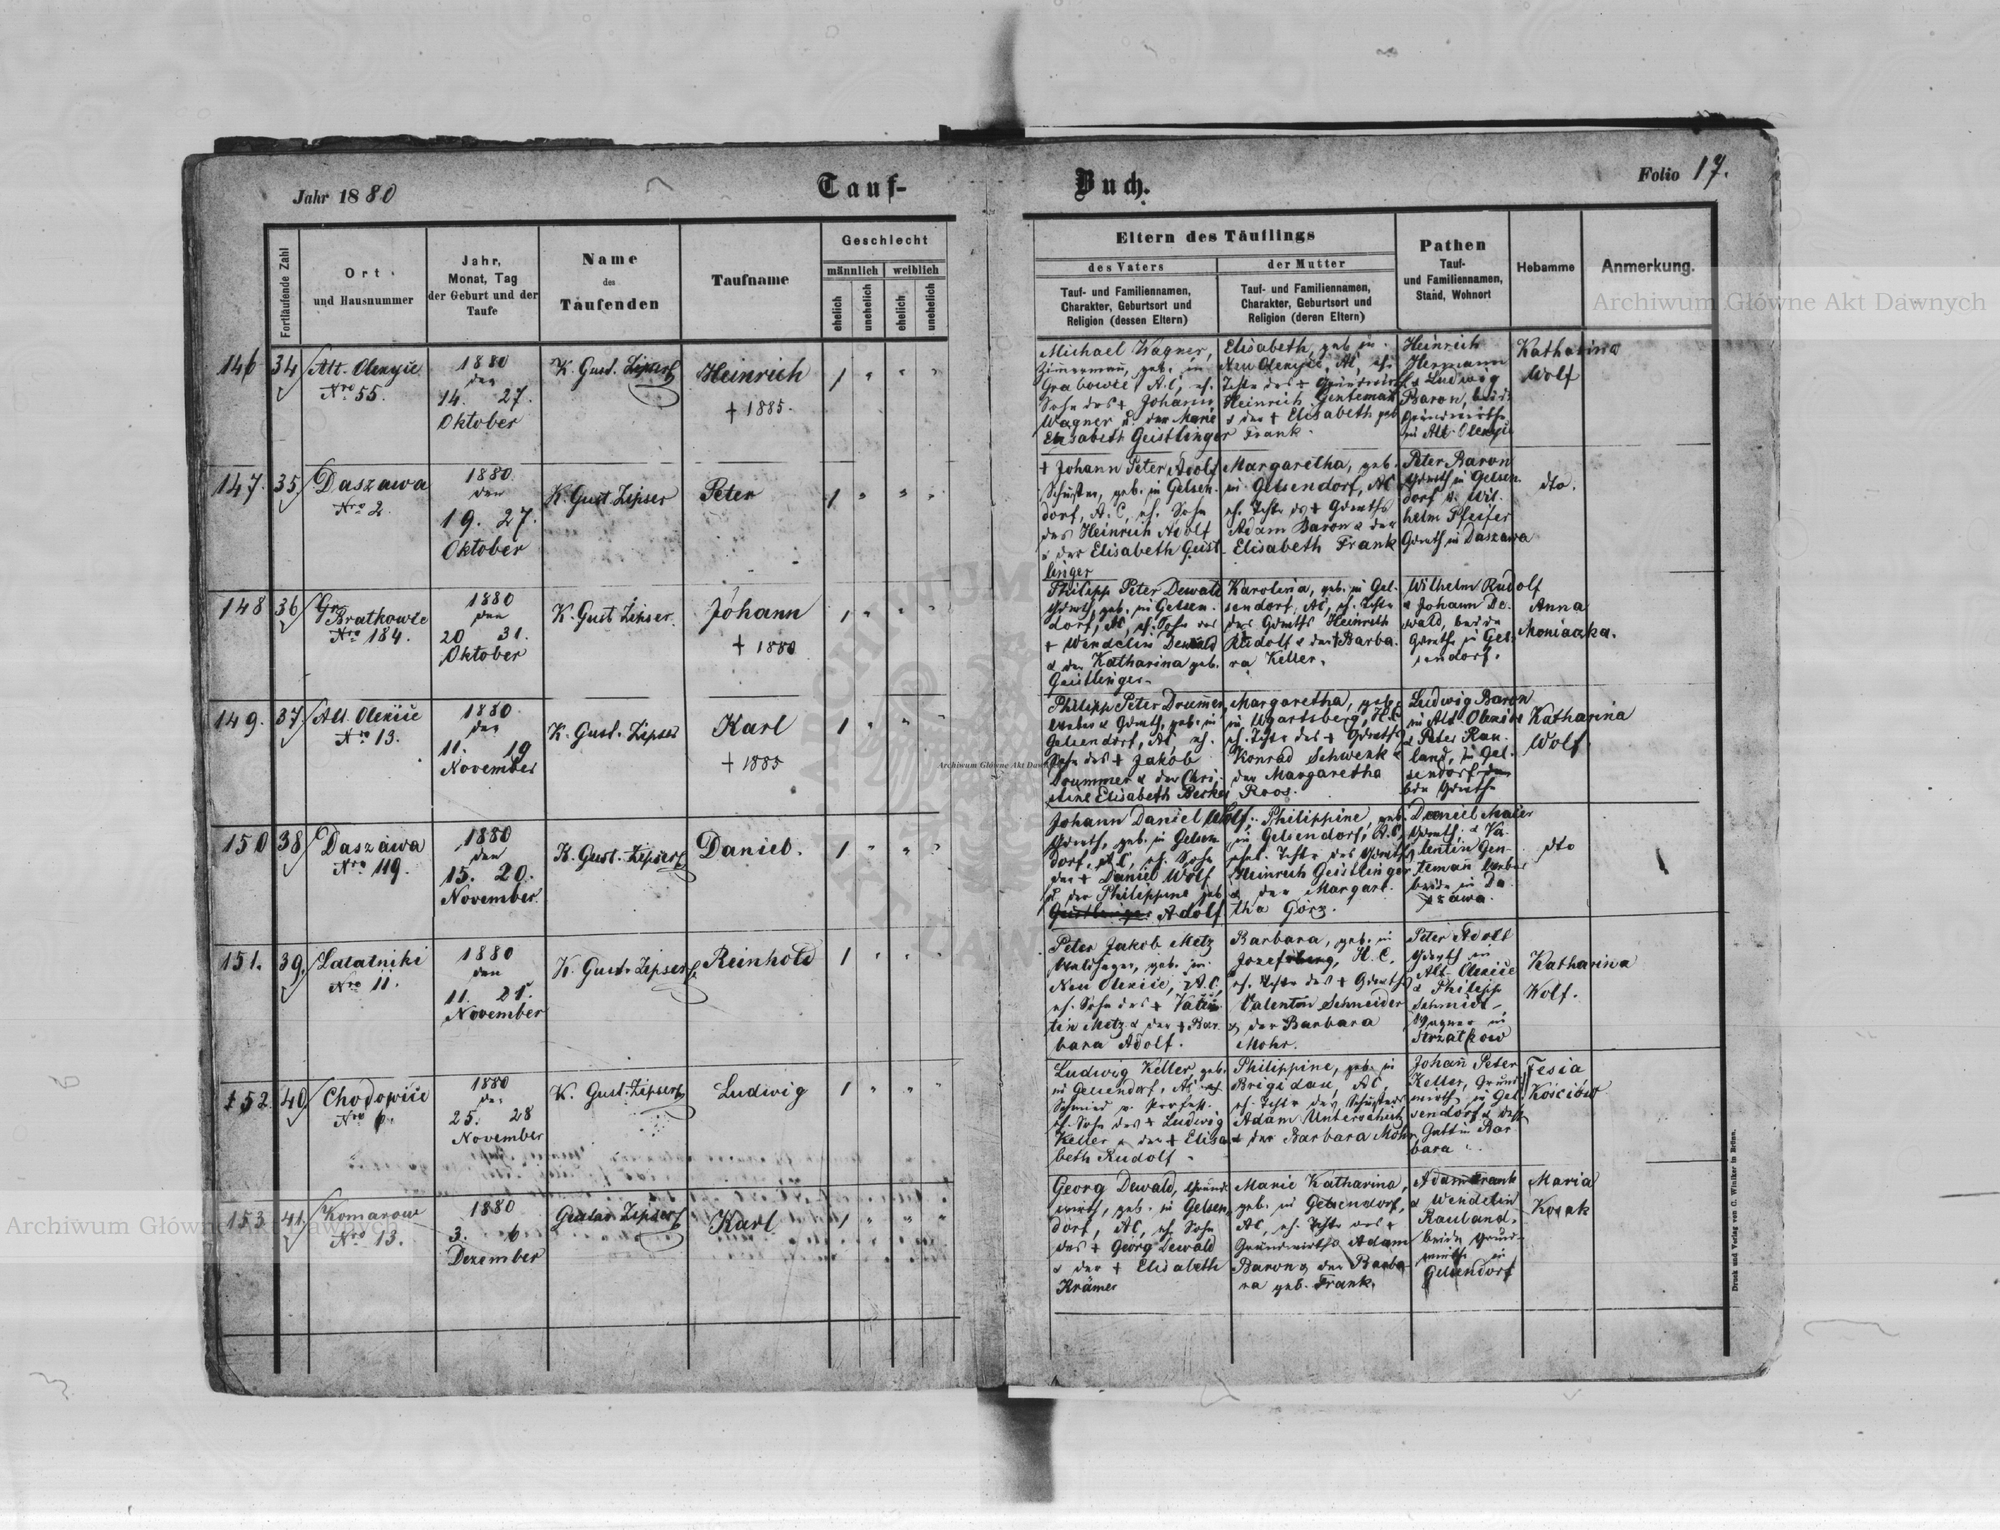 Jahr 1880
Tauf-
Buch.
Folio 17.
Fortlaufende Zahl
Ort
und Hausnummer
Jahr,
Monat, Tag
der Geburt und der
Taufe
Name
des
Taufenden
Taufname
Geschlecht
männlich
weiblich
ehelich
unehelich
ehelich
unehelich
Eltern des Täuflings
des Vaters
Tauf- und Familiennamen,
Charakter, Geburtsort und
Religion (dessen Eltern)
der Mutter
Tauf- und Familiennamen,
Charakter, Geburtsort und
Religion (deren Eltern)
Pathen
Tauf-
und Familiennamen,
Stand, Wohnort
Hebamme
Anmerkung.
146
34
Alt. Olexyic
Nro 55.
1880
den
14. 27.
Oktober
K. Gust. Zipser
Heinrich
† 1885.
1 " " "
Michael Wagner,
Zimmermann, geb. in
Grabowce A.C, eh.
Sohn des † Johann
Wagner u. der Marie
Elisabeth Geistlinger
Elisabeth, geb. in
Neu Olexyic, AC, eh.
Tochter des † Grundwirths
Heinrich Gentemann
& der † Elisabeth geb
Frank.
Heinrich
Hermann
& Ludwig
Baron, beide
Grundwirthe
in Alt Olexyic
Katharina
Wolf
147.
35
Daszawa
Nro 2.
1880
den
19. 27.
Oktober
K. Gust Zipser
Peter
1 " " "
† Johann Peter Adolf
Schuster, geb. in Gelsen-
dorf, A.C, eh. Sohn
des Heinrich Adolf
& der Elisabeth Geist-
linger
Margaretha, geb.
in Gelsendorf, AC
eh. Tochter des † Gdwirths
Adam Baron & der
Elisabeth Frank
Peter Baron
Gdwirth in Gelsen-
dorf & Wil-
helm Pfeifer
Gdwirth in Daszawa
dto.
148
36
Gr.
Bratkowce
Nro 184.
1880
den
20 31.
Oktober
K. Gust Zipser.
Johann
† 1880
1 " " "
Philipp Peter Dewald
Gdwirth, geb. in Gelsen-
dorf, AC, eh. Sohn des
† Wendelin Dewald
& der Katharina geb.
Geistlinger.
Karolina, geb. in Gel-
sendorf, AC, eh. Tochter
des Gdwirths Heinrich
Rudolf & der † Barba-
ra Keller.
Wilhelm Rudolf
& Johann De-
wald, beide
Gdwirthe in Gel-
sendorf.
Anna
Moniaczka.
149.
37
Alt. Olexiic
Nro 13.
1880
den
11. 19
November
K. Gust. Zipser
Karl
† 1885
1 " " "
Philipp Peter Drummer,
Weber & Gdwirth, geb. in
Gelsendorf, AC, eh.
Sohn des † Jakob
Drummer & der Chri-
stine Elisabeth Becker
Margaretha, geb.
in Ugartsberg, H.C
eh. Tochter des † Gdwirths
Konrad Schwenk &
der Margaretha
Roos.
Ludwig Baron
in Alt Olexiic
& Peter Rau-
land, in Gel-
sendorf
bde Gdwirthe
Katharina
Wolf.
150
38
Daszawa
Nro 119.
1880
den
15. 20.
November
K. Gust. Zipser
Daniel.
1 " " "
Johann Daniel Wolf,
Gdwirth, geb. in Gelsen-
dorf, AC, eh. Sohn
des † Daniel Wolf
& der Philippine geb
Geistlinger Adolf
Philippine, geb.
in Gelsendorf, A.C,
ehel. Tochter des Gdwirths
Heinrich Geistlinger
& der Margare-
tha Görz.
Daniel Maier
Gdwirth, & Va-
lentin Gen-
temann Weber
beide in Da-
szawa.
dto
151.
39.
Lalatniki
Nro 11.
1880
den
11. 21.
November
K. Gust. Zipser
Reinhold
1 " " "
Peter Jakob Metz
Waldheger, geb. in
Neu Olexiic, A.C,
eh. Sohn des † Valen-
tin Metz & der † Bar-
bara Adolf.
Barbara, geb. in
Jozefsberg, H.C.
eh. Tochter des † Gdwirths
Valentin Schneider
& der Barbara
Mohr.
Peter Adolf
Gdwirth in
Alt-Olexiic
& Philipp
Schmidt,
Wagner in
Strzałkow
Katharina
Wolf.
152
40
Chodowice
Nro 6.
1880
den
25. 28
November
K. Gust. Zipser
Ludwig
1 " " "
Ludwig Keller geb.
in Gelsendorf, AC
Schmied v. Profess.
eh. Sohn des † Ludwig
Keller & der † Elisa-
beth Rudolf
Philippine, geb. in
Brigidau, AC,
eh. Tochter des Schusters
Adam Unterschütz
& der Barbara Mohr
Johann Peter
Keller, Grund-
wirth in Gel-
sendorf & dess.
Gattin Bar-
bara
Tesia
Kosciów
153
41.
Komarow
Nro 13.
1880
3. 6
Dezember
Gustav Zipser
Karl
1 " " "
Georg Dewald, Grund-
wirth, geb. in Gelsen-
dorf, AC, eh. Sohn
des † Georg Dewald
& der † Elisabeth
Krämer
Marie Katharina,
geb. in Gelsendorf,
AC, eh. Tochter des †
Grundwirths Adam
Baron & der Barba-
ra geb. Frank.
Adam Frank
& Wendelin
Rauland,
beide Grund-
wirthe in
Gelsendorf
Maria
Kozak
Druck und Verlag von C. Winiker in Brünn.
Archiwum Główne Akt Dawnych
Archiwum Główne Akt Dawnych
Archiwum Główne Akt Dawnych